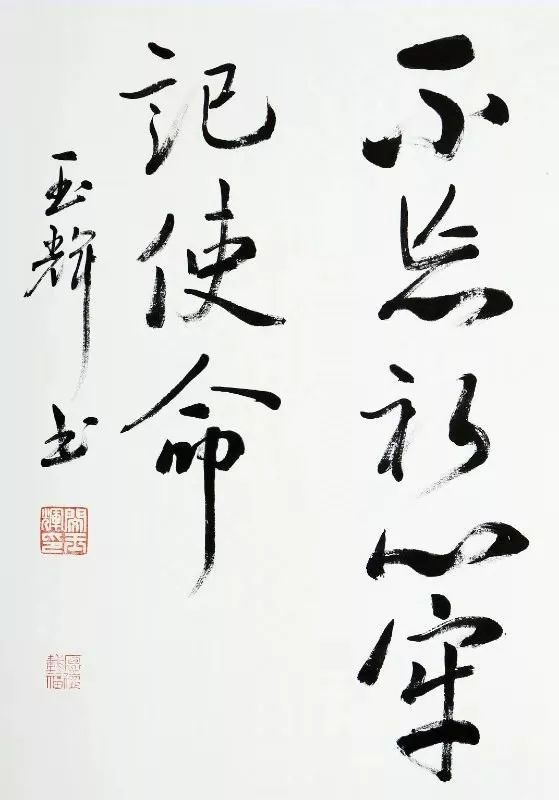 不忘初心牢
記使命
玉輝书